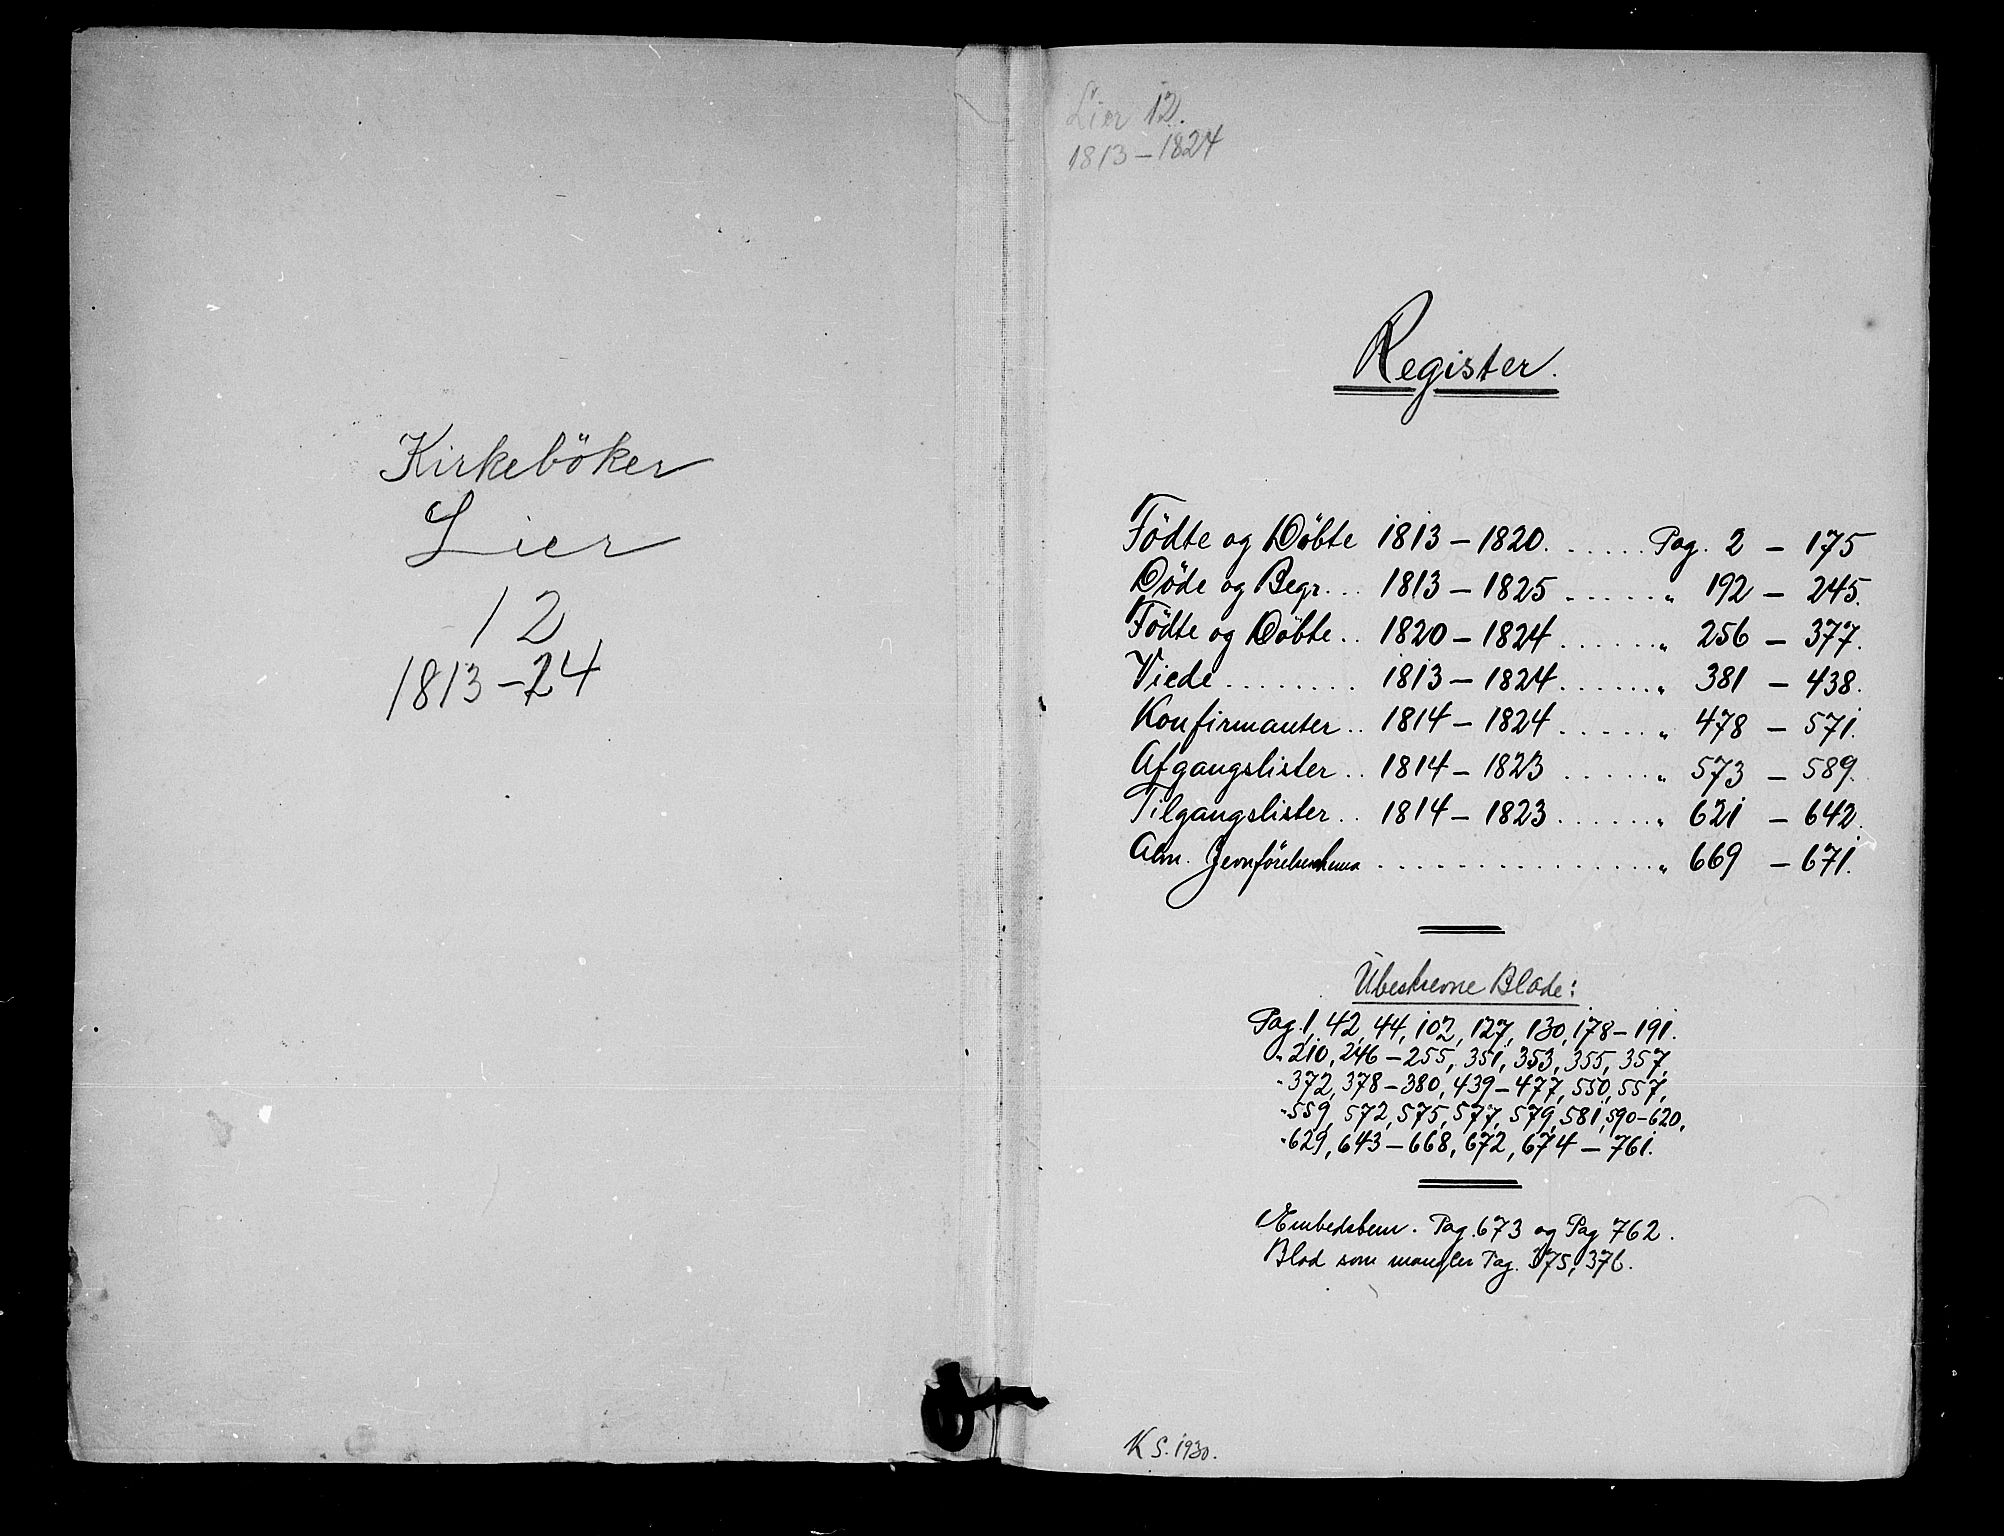 Kirkeböker
Lier
12
1813-24
Lier 12.
1813-1824
Register.
Födte og Döbte 1813-1820. ..... Pag. 2 - 175
Döde og Begr. .. 1813-1825 ..... " 192 - 245.
Födte og Döbte .. 1820-1824 ...... " 256 - 377.
Viede ........ 1813-1824 ...... " 381 - 438.
Konfirmanter .. 1814-1824 ..... " 478 - 571.
Afgangslister .. 1814-1823 ..... " 573 - 589.
Tilgangslister .. 1814-1823 ...... " 621 - 642.
Alm. Jevnförelseskema ................ " 669 - 671.
Ubeskrevne Blade:
Pag. 1, 42, 44, 102, 127, 130, 178-191.
" 210, 246-255, 351, 353, 355, 357,
" 372, 378-380, 439-477, 550, 557,
" 559, 572, 575, 577, 579, 581, 590-620,
" 629, 643-668, 672, 674-761.
Embedsbem. Pag. 673 og Pag 762.
Blad som mangler Pag. 375, 376.
K S. 1930.